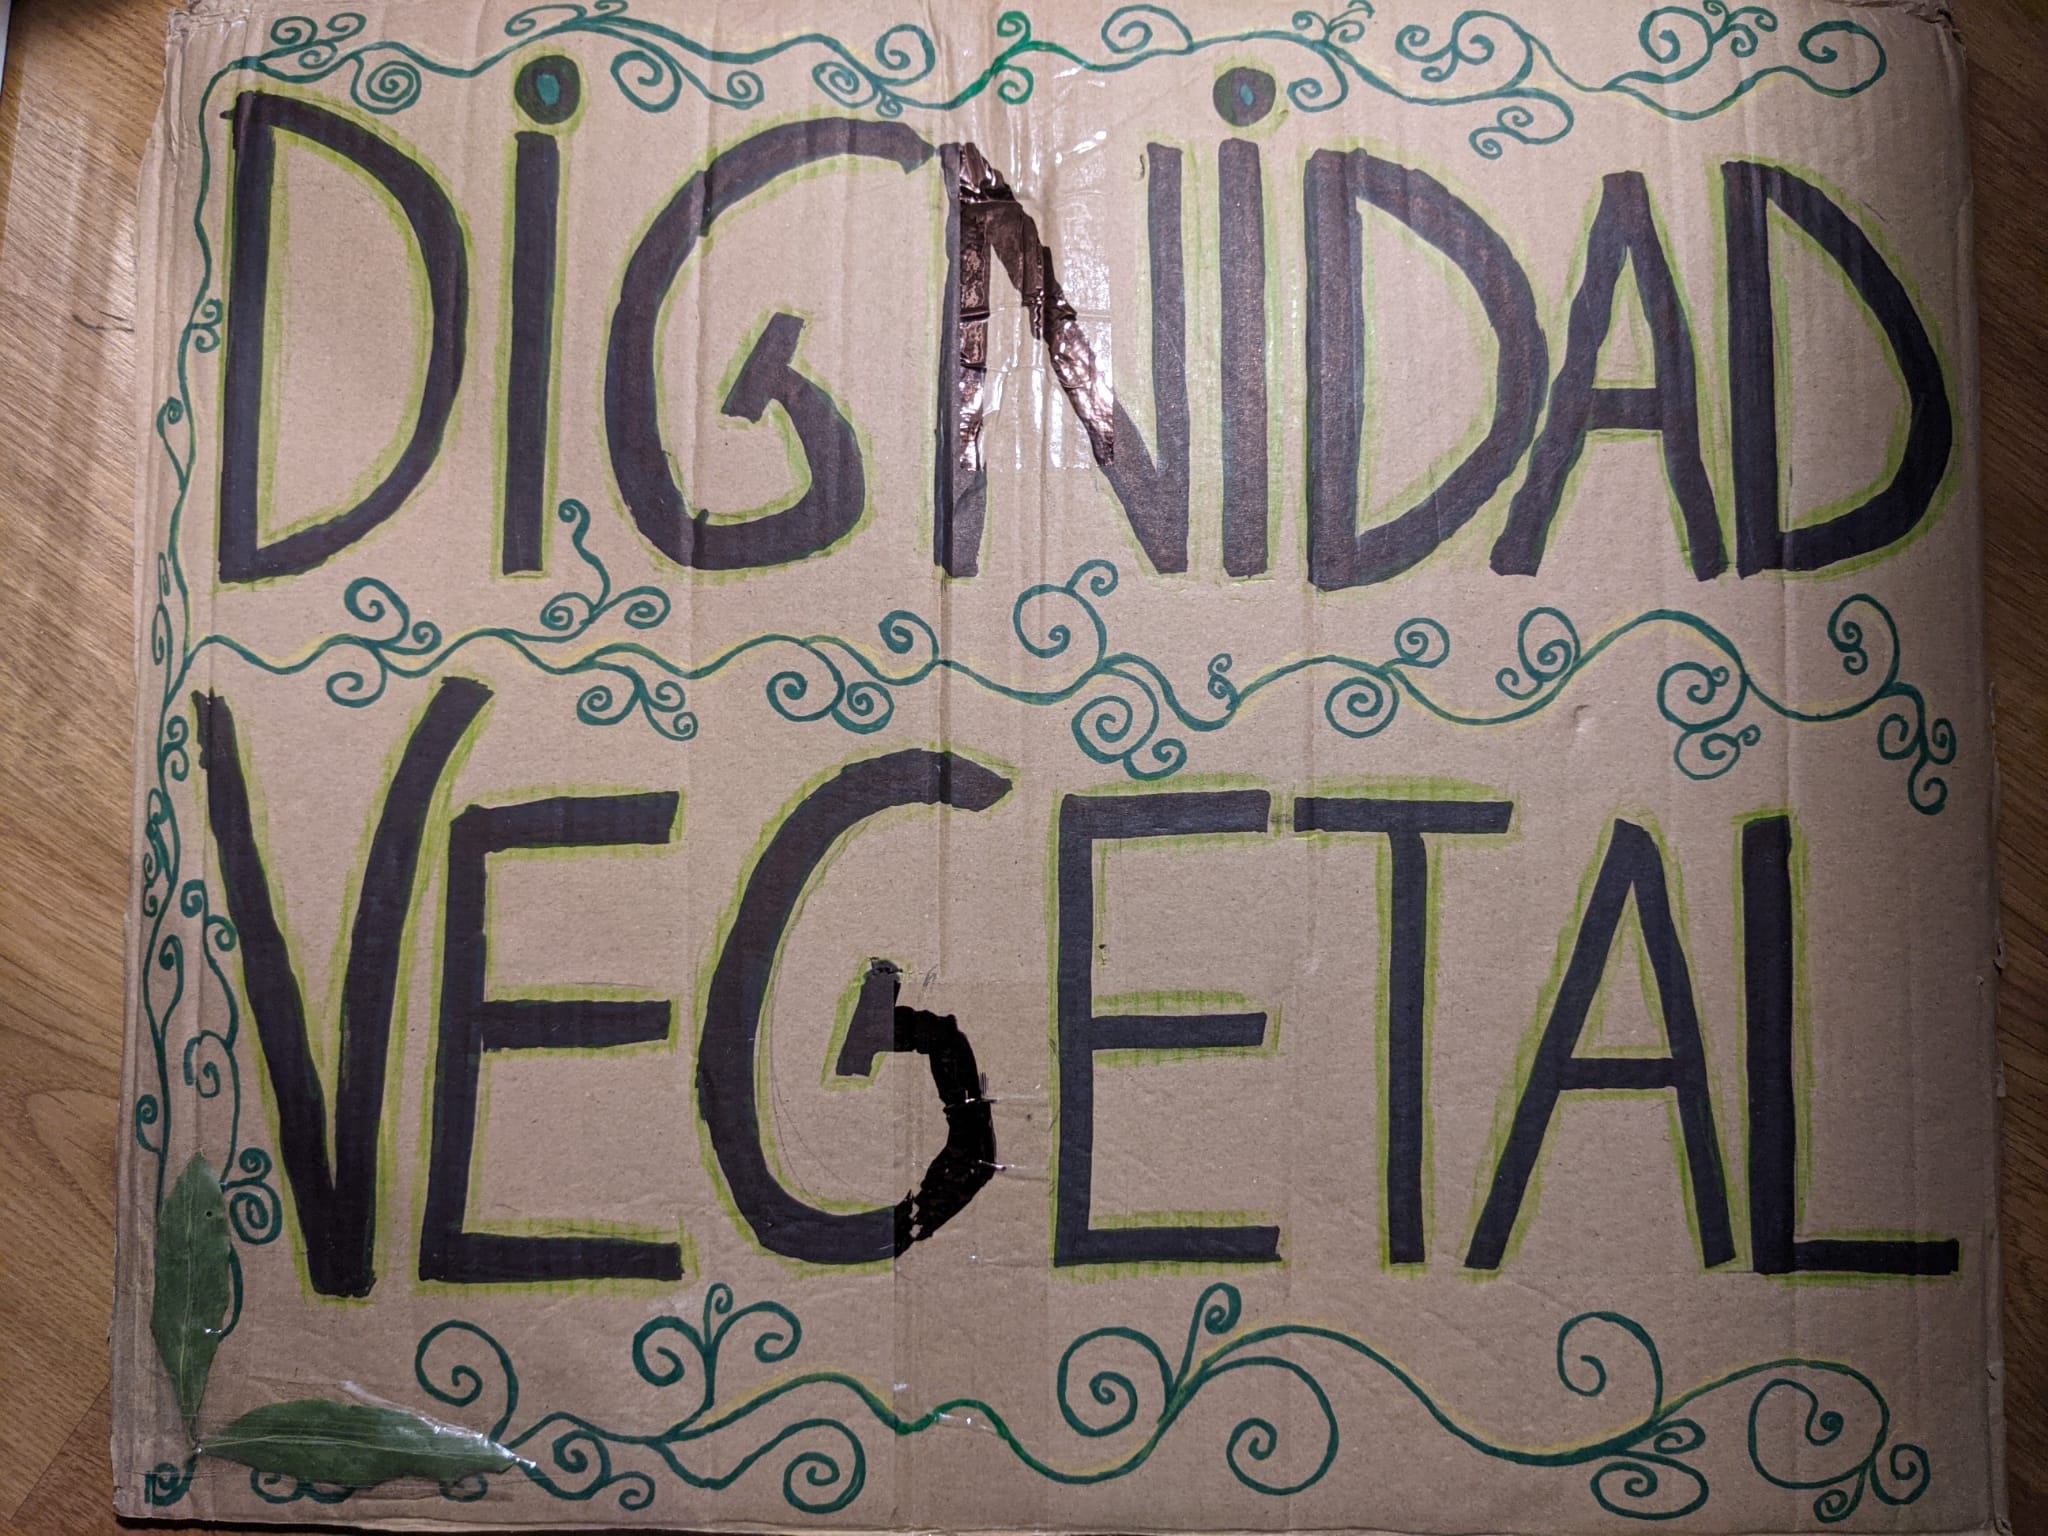 DiGNiDAD
VEGETAL